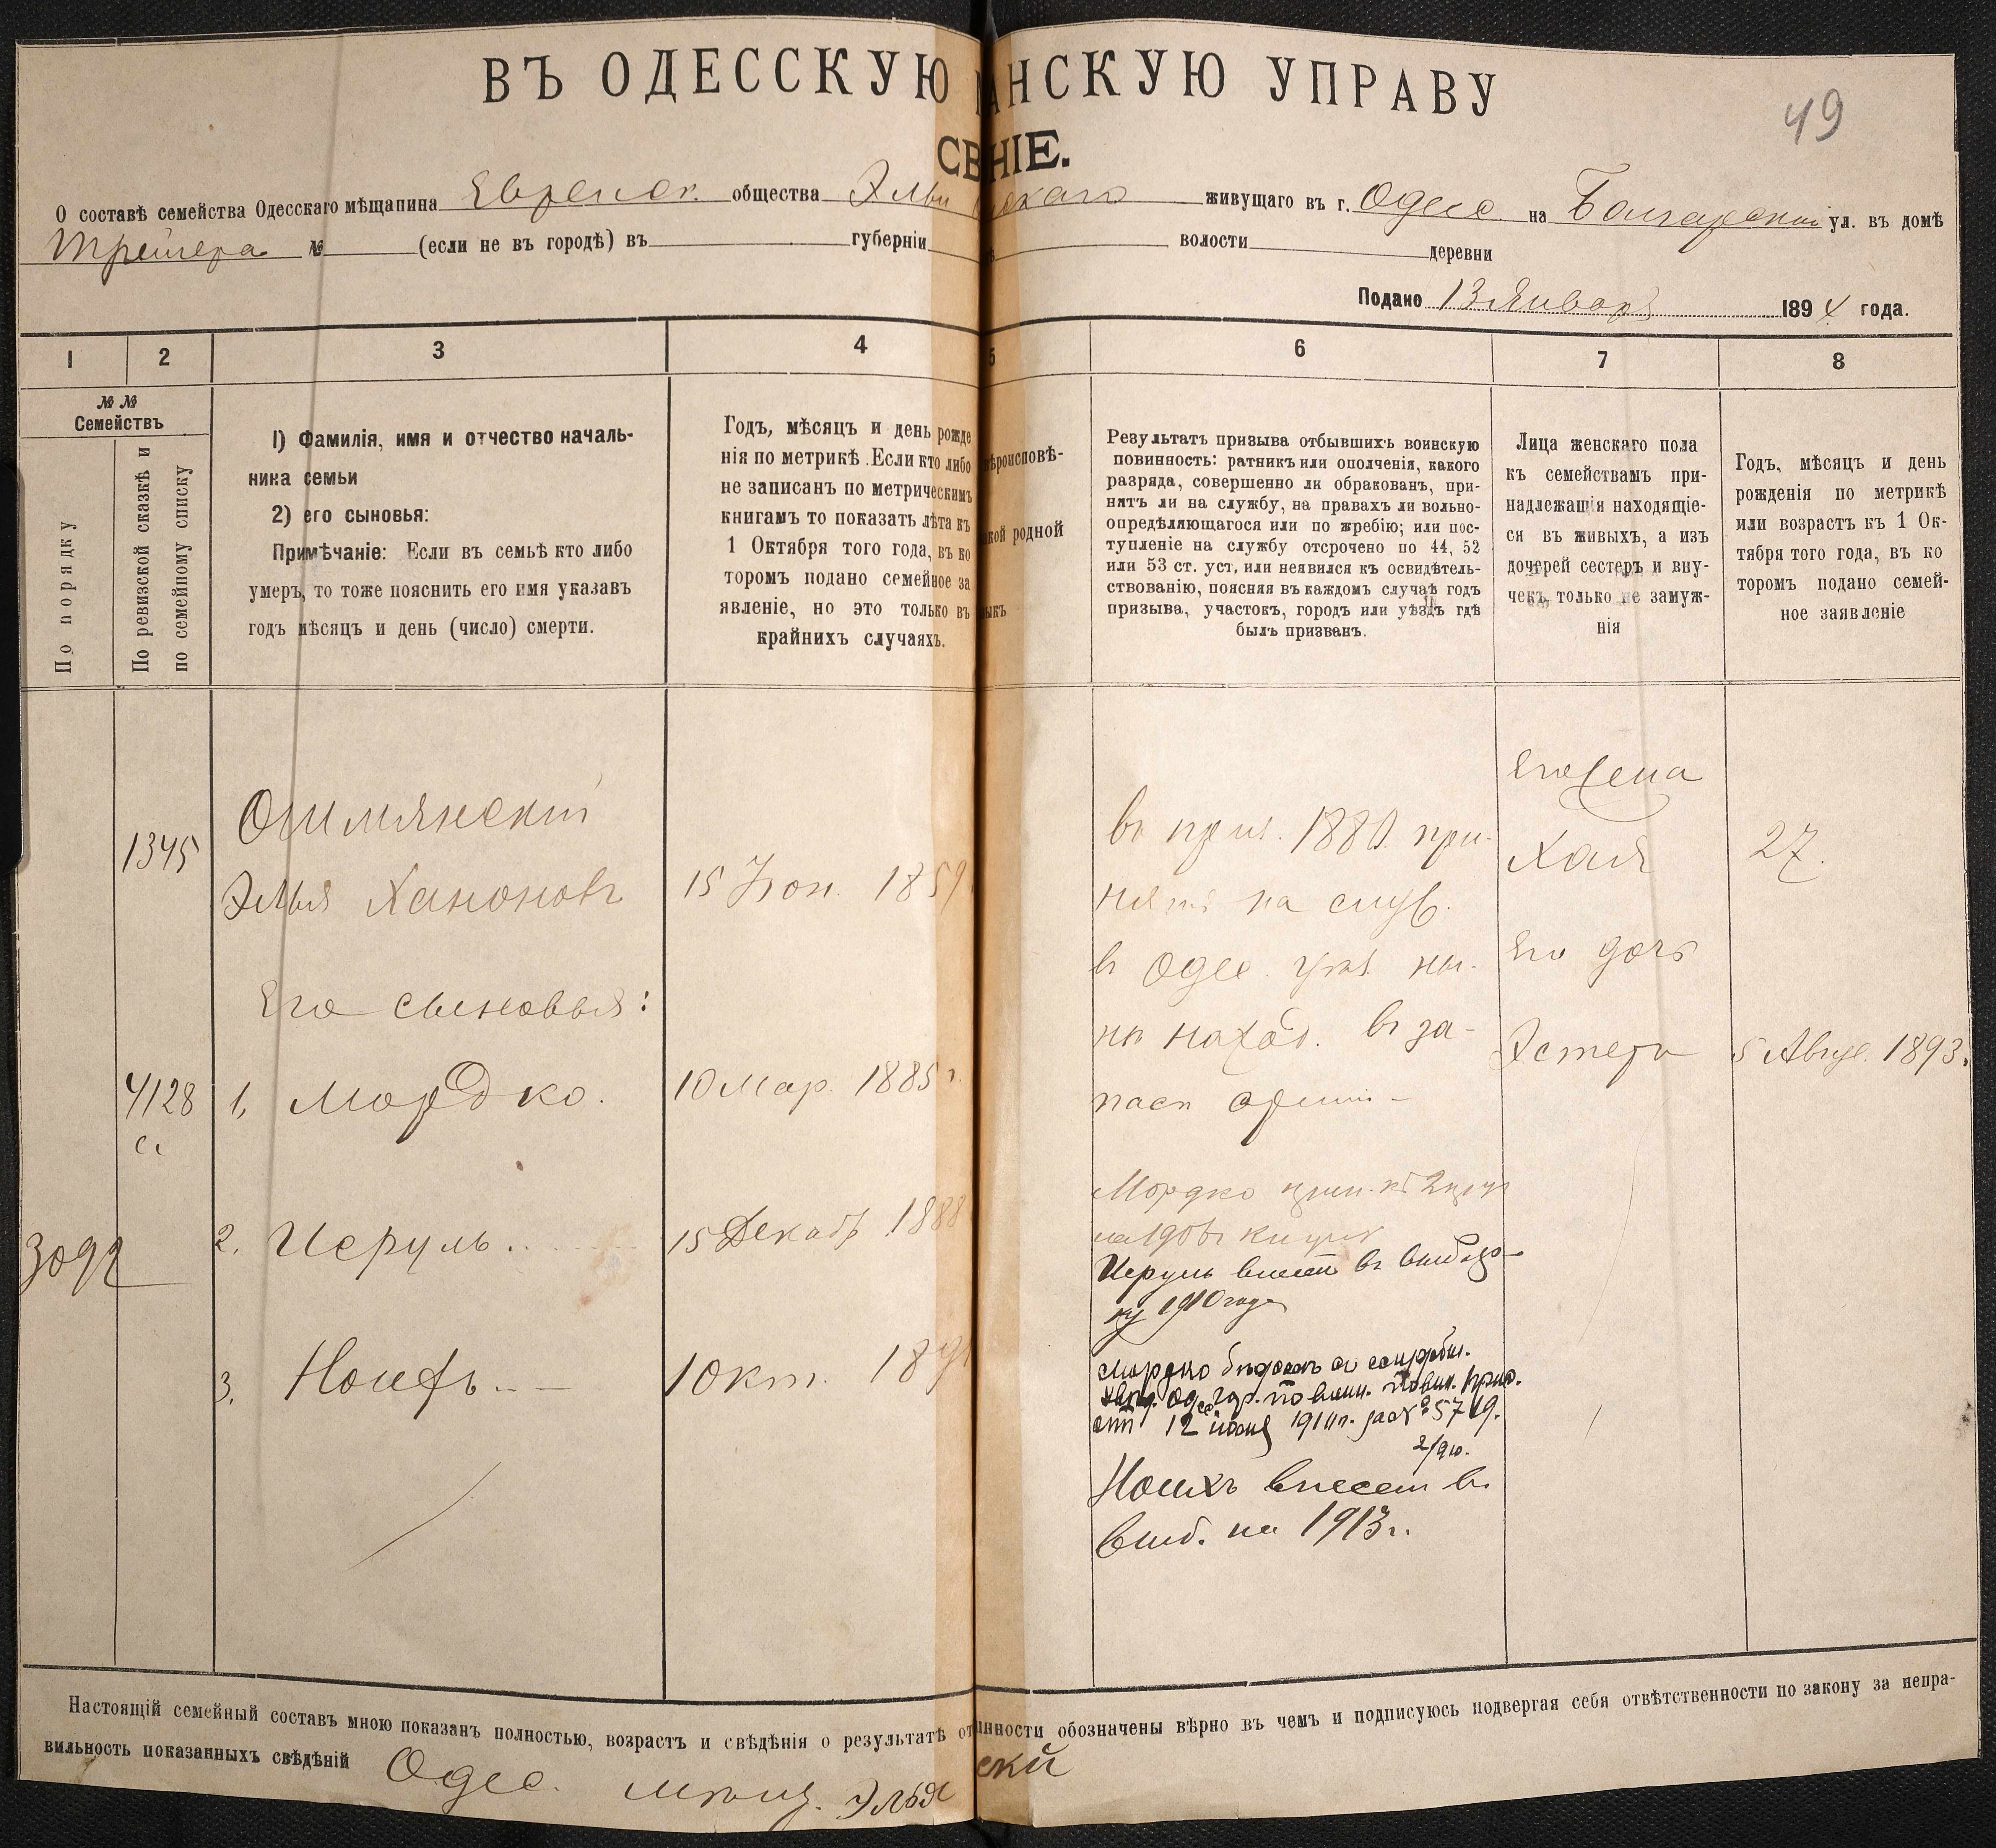 49
ВЪ ОДЕССКУЮ АНСКУЮ УПРАВУ
СВ НІЕ.
О составѣ семейства Одесскаго мѣщанина Еврейск. общества Эльи скаго живущаго въ г. Одесс. на Болгарской ул. въ домѣ
№ (если не въ городѣ) въ губерніи волости деревни
Подано 13 Января 1894 года.
1 2 3 4 5 6 7 8
№ №
Семействъ
По порядку
По ревизской сказкѣ и
по семейному списку
1) Фамилія, имя и отчество началь-
ника семьи
2) его сыновья:
Примѣчаніе: Если въ семьѣ кто либо
умеръ, то тоже пояснить его имя указавъ
годъ мѣсяцъ и день (число) смерти.
Годъ, мѣсяцъ и день рожде
нія по метрикѣ. Если кто либо
не записанъ по метрическимъ
книгамъ то показать лѣта къ
1 Октября того года, въ ко
торомъ подано семейное за
явленіе, но это только въ
крайнихъ случаяхъ.
ѣроисповѣ-
кой родной
ыкъ
Результатъ призыва отбывшихъ воинскую
повинность: ратникъ или ополченія, какого
разряда, совершенно ли обракованъ, при-
нятъ ли на службу, на правахъ ли вольно-
опредѣляющагося или по жребію; или пос-
тупленіе на службу отсрочено по 44, 52
или 53 ст. уст, или неявился къ освидѣтель-
ствованію, поясняя въ каждомъ случаѣ годъ
призыва, участокъ, городъ или уѣздъ гдѣ
былъ призванъ.
Лица женскаго пола
къ семействамъ при-
надлежащія находящіе-
ся въ живыхъ, а изъ
дочерей сестеръ и вну-
чекъ, только не замуж-
нія
Годъ, мѣсяцъ и день
рожденія по метрикѣ
или возрастъ къ 1 Ок-
тября того года, въ ко
торомъ подано семей-
ное заявленіе
1345
Ошмянскій
Элья Хононовъ
15 Іюн. 1859
Его сыновья:
4128
1, Мордко.
10 Мар. 1885 г.
3092
2. Исруль
15 Декабр. 1888
3.
1 Окт. 1891
въ приз. 1880. при-
нятъ на служ.
въ Одес. уѣз. ны-
нѣ наход. въ за-
пасѣ арміи
Мордко
Исруль внесен въ выбор-
ку 1910 года
Мордко
12 1911 г. за № 5749.
внесен въ
выб. на 1913 г.
Его жена
Хая
27.
Его дочь
Эстеръ
5 Авгус. 1893.
Настоящій семейный составъ мною показанъ полностью, возрастъ и свѣдѣнія о результатѣ от инности обозначены вѣрно въ чемъ и подписуюсь подвергая себя отвѣтственности по закону за непра-
вильность показанныхъ свѣдѣній Одес. мѣщ. Элья скій